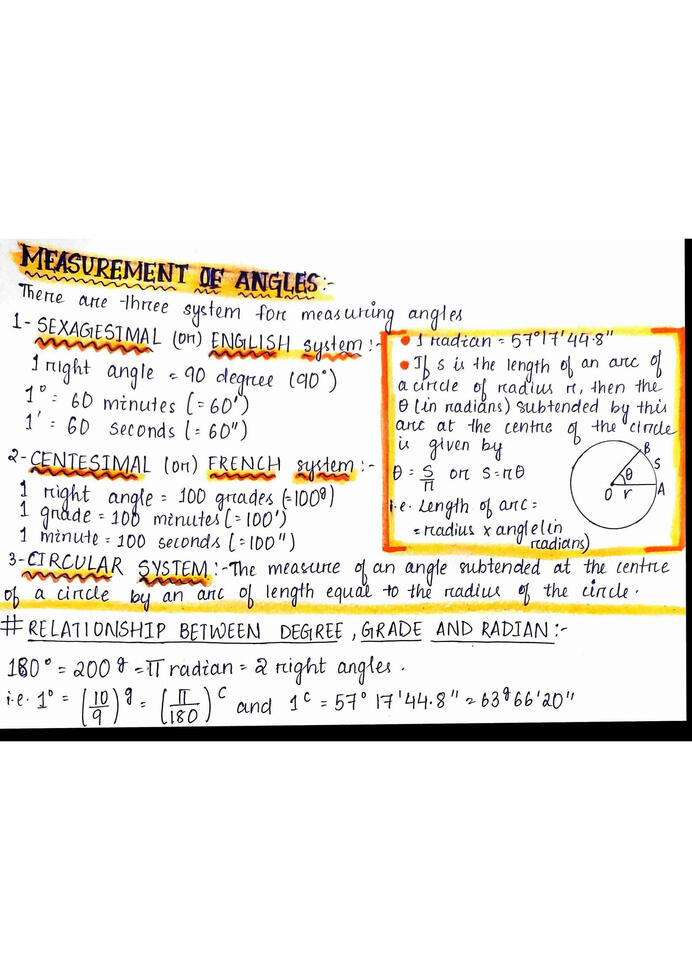 MEASUREMENT OF ANGLES:-
There are three system for measuring angles
1- SEXAGESIMAL (or) ENGLISH system:-
1 right angle = 90 degree (90°)
1° = 60 minutes (= 60')
1' = 60 seconds (= 60")
2- CENTESIMAL (or) FRENCH system:-
1 right angle = 100 grades (=100g)
1 grade = 100 minutes (=100')
1 minute = 100 seconds (=100")
• 1 radian = 57°17'44.8"
• If s is the length of an arc of
a circle of radius r, then the
θ (in radians) subtended by this
arc at the centre of the circle
is given by
θ = s/r or s = rθ
i.e. Length of arc =
= radius x angle(in
radians)
B
S
θ
O r A
3- CIRCULAR SYSTEM:- The measure of an angle subtended at the centre
of a circle by an arc of length equal to the radius of the circle.
# RELATIONSHIP BETWEEN DEGREE, GRADE AND RADIAN:-
180° = 200g = π radian = 2 right angles.
i.e. 1° = (10/9)g = (π/180)c and 1c = 57° 17'44.8" = 63g66'20"